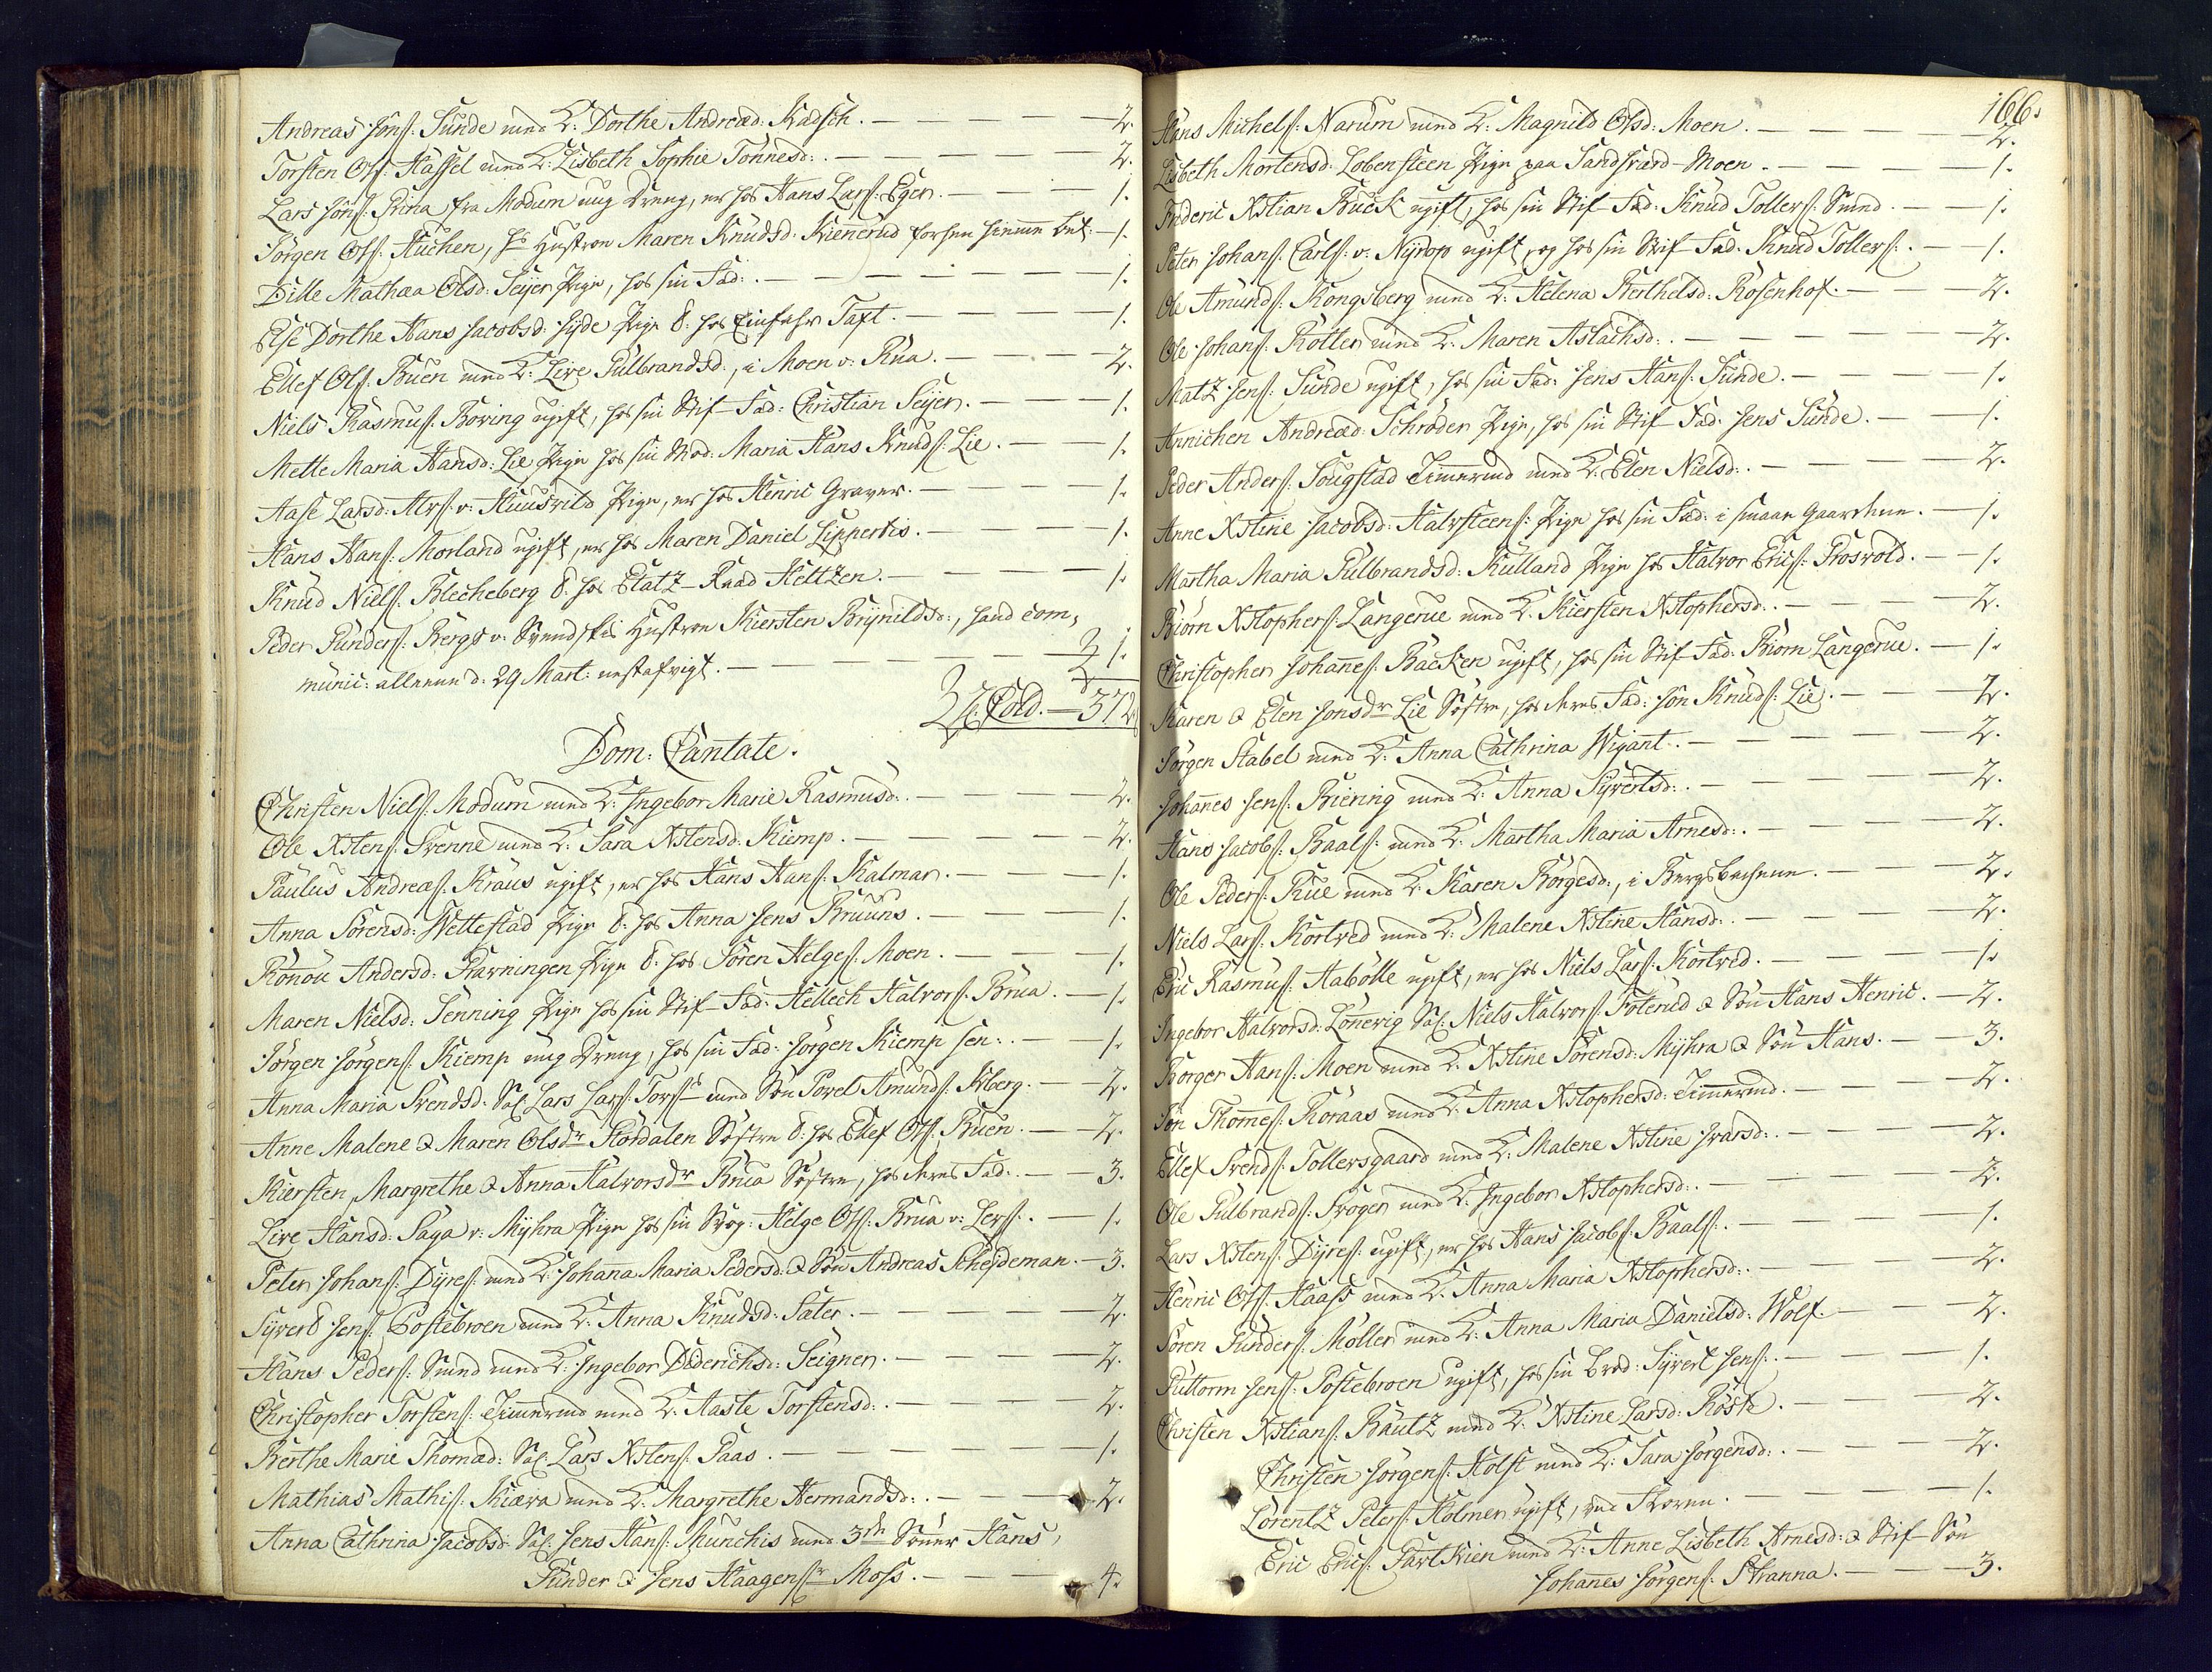 Andreas Jons: Sunde med K: Dorthe Andread: Kadsch. — 2.
Torsten Ols: Hassel med K: Lisbeth Sophie Tonnesd: — 2.
Lars Jons: Prina fra Modum ung Dreng, er hos Hans Lars: Eger. — 1.
Jörgen Ols: Kuchen, hs Hustroe Maren Knudsd: Kienerud forhen hiemme bet: — 1.
Dille Mathea Olsd: Seyer Pige, hos sin Fad: — 1.
Else Dorthe Hans Jacobsd: Hyde Pige t: hos Einfahr Taft. — 1.
Ellef Ols: Buen med K: Live Gulbrandsd:, i Moen v: Rua. — 2.
Niels Rasmus: Boring ugift, hos sin Stif-Fad: Christian Seyer. — 1.
Mette Maria Hansd: Lie Pige hos sin Mod: Maria Hans Knuds: Lie. — 1.
Aase Larsd: v: Kuusvild Pige, er hos Henric Graver. — 1.
Hans Hans: Morland ugift, er hos Maren Daniel Lippertis. — 1.
Knud Niels: Blecheberg t: hos Etatz-Raad Heltzen. — 1.
Peder Gunders: Bergs v: Svendskis Hustroe Kiersten Brynildsd:, hand com-
munic: allerene d: 29 Mart: nestafvigt. — 1.
Fold. — 372
Dom: Cantate.
Christen Niels: Modum med K: Ingebor Marie Rasmusd: — 2.
Ole Xstens: Svenne med K: Sara Xstensd: Kiemp. — 2.
Paulus Andreas: Kraus ugift, er hos Hans Hans: Kalmar. — 1.
Anna Sörensd: Wettestad Pige t: hos Anna Jens Bruuns. — 1.
Ronou Andersd: Ravningen Pige t: hos Sören Helges: Moen. — 1.
Maren Nielsd: Senning Pige hos sin Stif-Fad: Hellech Halvors: Brua. — 1.
Jörgen Jörgens: Kiemp ung Dreng, hos sin Fad: Jörgen Kiemp sen: — 1.
Anna Maria Svendsd: Sal: Lars Lars: Torst med Sön Povel Amunds: Aberg. — 2.
Anne Malene & Maren Olsdr Stördalen Söstre t: hos Ellef Ols: Buen. — 2.
Kiersten, Margrethe & Anna Halvorsdr Brua Söstre, hos deres Fad: — 3.
Live Hansd: Saga v: Myhra Pige hos sin Svog: Helge Ols: Brua v: Lers: — 1.
Peter Johans: Dyres: med K: Johana Maria Pedersd: & Sön Andreas Scheydeman. — 3.
Syvert Jens: Postebroen med K: Anna Knudsd: Sater. — 2.
Hans Peders: Smed med K: Ingebor Diderichsd: Seigner. — 2.
Christopher Torstens: Timermd med K: Aaste Torstensd: — 2.
Berthe Marie Thomad: Sal: Lars Xstens: Paas. — 1.
Mathias Mathis: Kiæra med K: Margrethe Hermandsd: — 2.
Anna Cathrina Jacobsd: Sal: Jens Hans: Munchis med 3de Sönner Hans,
Gunder & Jens Haagensr Moss. — 4.
166.
Hans Michels: Narum med K: Magnild Olsd: Moen. — 2.
Lisbeth Mortensd: Lobensteen Pige paa Sandsværd-Moen. — 1.
Frederic Xstian Buck ugift, hos sin Stif-Fad: Knud Tollers: Smed. — 1.
Peter Johans: Carls: v: Nyrop ugift, og hos sin Stif-Fad: Knud Tollers: — 1.
Ole Amunds: Kongsberg med K: Helena Berthelsd: Rosenhof. — 2.
Ole Johans: Kotter med K: Maren Aslachsd: — 2.
Matz Jens: Sunde ugift, hos sin Fad: Jens Hans: Sunde. — 1.
Annichen Andread: Schröder Pige, hos sin Stif-Fad: Jens Sunde. — 1.
Peder Anders: Sougstad Timermd med K: Elen Nielsd: — 2.
Anne Xstine Jacobsd: Halvsteens: Pige hos sin Fad: i smaae Gaardene. — 1.
Martha Maria Gulbrandsd: Kulland Pige hos Halvor Erics: Rosvold. — 1.
Biörn Xstophers: Langerue med K: Kiersten Xstophersd: — 2.
Christopher Johanes: Backen ugift, hos sin Stif-Fad: Biörn Langerue. — 1.
Karen & Elen Jonsdr Lie Söstre, hos deres Fad: Jön Knuds: Lie. — 2.
Jörgen Stabel med K: Anna Cathrina Wigant. — 2.
Johanes Jens: Biering med K: Anna Syvertsd: — 2.
Hans Jacobs: Baals: med K: Martha Maria Arnesd: — 2.
Ole Peders: Rue med K: Karen Borgesd:, i Bergsbachene. — 2.
Niels Lars: Kortved med K: Malene Xstine Hansd: — 2.
Eric Rasmus: Aabölle ugift, er hos Niels Lars: Kortved. — 1.
Ingebor Halvorsd: Lönnevig Sal: Niels Halvors: Foterud & Sön Hans Henric. — 2.
Borger Hans: Moen med K: Xstine Sörensd: Myhra & Sön Hans. — 3.
Jön Thomes: Roraas med K: Anna Xstophersd: Timermd. — 2.
Ellef Svends: Tollersgaard med K: Malene Xstine Ivarsd: — 2.
Ole Gulbrands: Skogen med K: Ingebor Xstophersd: — 2.
Lars Xstens: Dyres: ugift, er hos Hans Jacobs: Baals: — 1.
Henric Ols: Haass med K: Anna Maria Xstophersd: — 2.
Sören Gunders: Möller med K: Anna Maria Danielsd: Wolf. — 2.
Guttorm Jens: Postebroen ugift, hos sin Brod: Syvert Jens: — 1.
Christen Xstians: Bautz med K: Xstine Larsd: Rösk. — 2.
Christen Jörgens: Holst med K: Sara Jörgensd: — 2.
Lorentz Peters: Holmer ugift, ved Skoven. — 1.
Eric Erics: Partkien med K: Anne Lisbeth Arnesd: & Stif-Sön
Johanes Jörgens: Stranna. — 3.